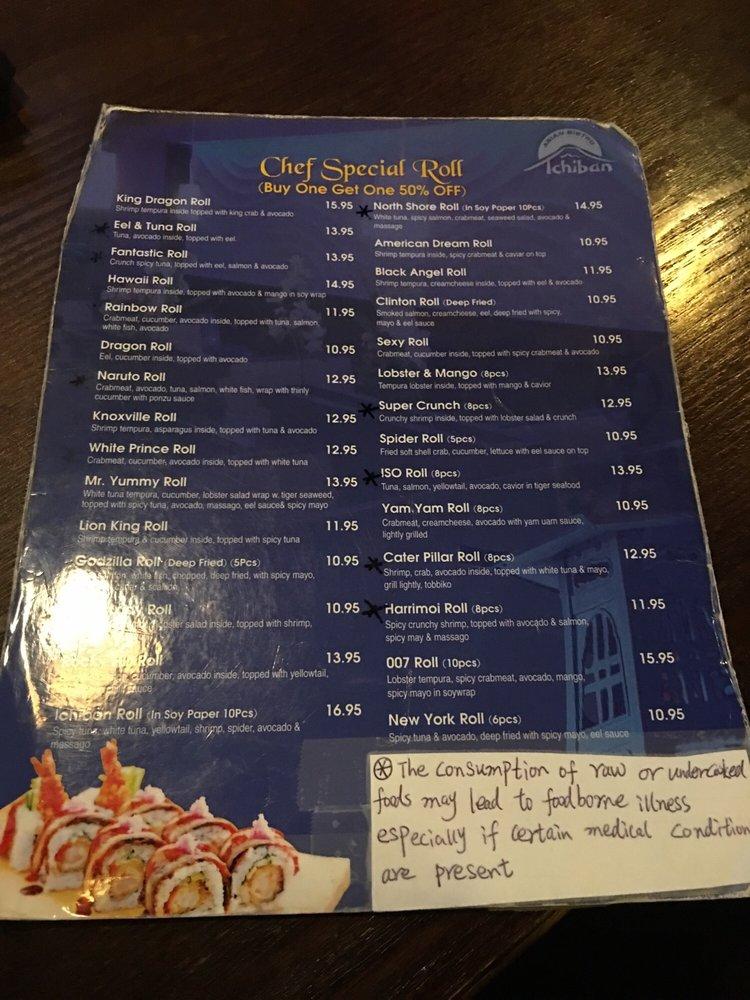 ASIAN BISTRO
Ichiban
Chef Special Roll
(Buy One Get One 50% OFF)
King Dragon Roll 15.95
Shrimp tempura inside topped with king crab & avocado
Eel & Tuna Roll 13.95
Tuna, avocado inside, topped with eel.
Fantastic Roll 13.95
Crunch spicy tuna, topped with eel, salmon & avocado
Hawaii Roll 14.95
Shrimp tempura inside, topped with avocado & mango in soy wrap
Rainbow Roll 11.95
Crabmeat, cucumber, avocado inside, topped with tuna, salmon,
white fish, avocado
Dragon Roll 10.95
Eel, cucumber inside, topped with avocado
Naruto Roll 12.95
Crabmeat, avocado, tuna, salmon, white fish, wrap with thinly
cucumber with ponzu sauce
Knoxville Roll 12.95
Shrimp tempura, asparagus inside, topped with tuna & avocado
White Prince Roll 12.95
Crabmeat, cucumber, avocado inside, topped with white tuna
Mr. Yummy Roll 13.95
White tuna tempura, cucumber, lobster salad wrap w. tiger seaweed,
topped with spicy tuna, avocado, massago, eel sauce& spicy mayo
Lion King Roll 11.95
Shrimp tempura & cucumber inside, topped with spicy tuna
Godzilla Roll (Deep Fried) (5Pcs) 10.95
white fish, chopped, deep fried, with spicy mayo,
Roll 10.95
salad inside, topped with shrimp,
Roll 13.95
cucumber, avocado inside, topped with yellowtail,
sauce
Ichiban Roll (In Soy Paper 10Pcs) 16.95
Spicy tuna, white tuna, yellowtail, shrimp, spider, avocado &
massago
North Shore Roll (In Soy Paper 10Pcs) 14.95
White tuna, spicy salmon, crabmeat, seaweed salad, avocado &
massago
American Dream Roll 10.95
Shrimp tempura inside, spicy crabmeat & caviar on top
Black Angel Roll 11.95
Shrimp tempura, creamcheese inside, topped with eel & avocado
Clinton Roll (Deep Fried) 10.95
Smoked salmon, creamcheese, eel, deep fried with spicy,
mayo & eel sauce
Sexy Roll 10.95
Crabmeat, cucumber inside, topped with spicy crabmeat & avocado
Lobster & Mango (8pcs) 13.95
Tempura lobster inside, topped with mango & cavior
Super Crunch (8pcs) 12.95
Crunchy shrimp inside, topped with lobster salad & crunch
Spider Roll (5pcs) 10.95
Fried soft shell crab, cucumber, lettuce with eel sauce on top
ISO Roll (8pcs) 13.95
Tuna, salmon, yellowtail, avocado, cavior in tiger seafood
Yam.Yam Roll (8pcs) 10.95
Crabmeat, creamcheese, avocado with yam uam sauce,
lightly grilled
Cater Pillar Roll (8pcs) 12.95
Shrimp, crab, avocado inside, topped with white tuna & mayo,
grill lightly, tobbiko
Harrimoi Roll (8pcs) 11.95
Spicy crunchy shrimp, topped with avocado & salmon,
spicy may & massago
007 Roll (10pcs) 15.95
Lobster tempura, spicy crabmeat, avocado, mango,
spicy mayo in soywrap
New York Roll (6pcs) 10.95
Spicy tuna & avocado, deep fried with spicy mayo, eel sauce
* The consumption of raw or undercooked
foods may lead to foodborne illness
especially if certain medical condition
are present